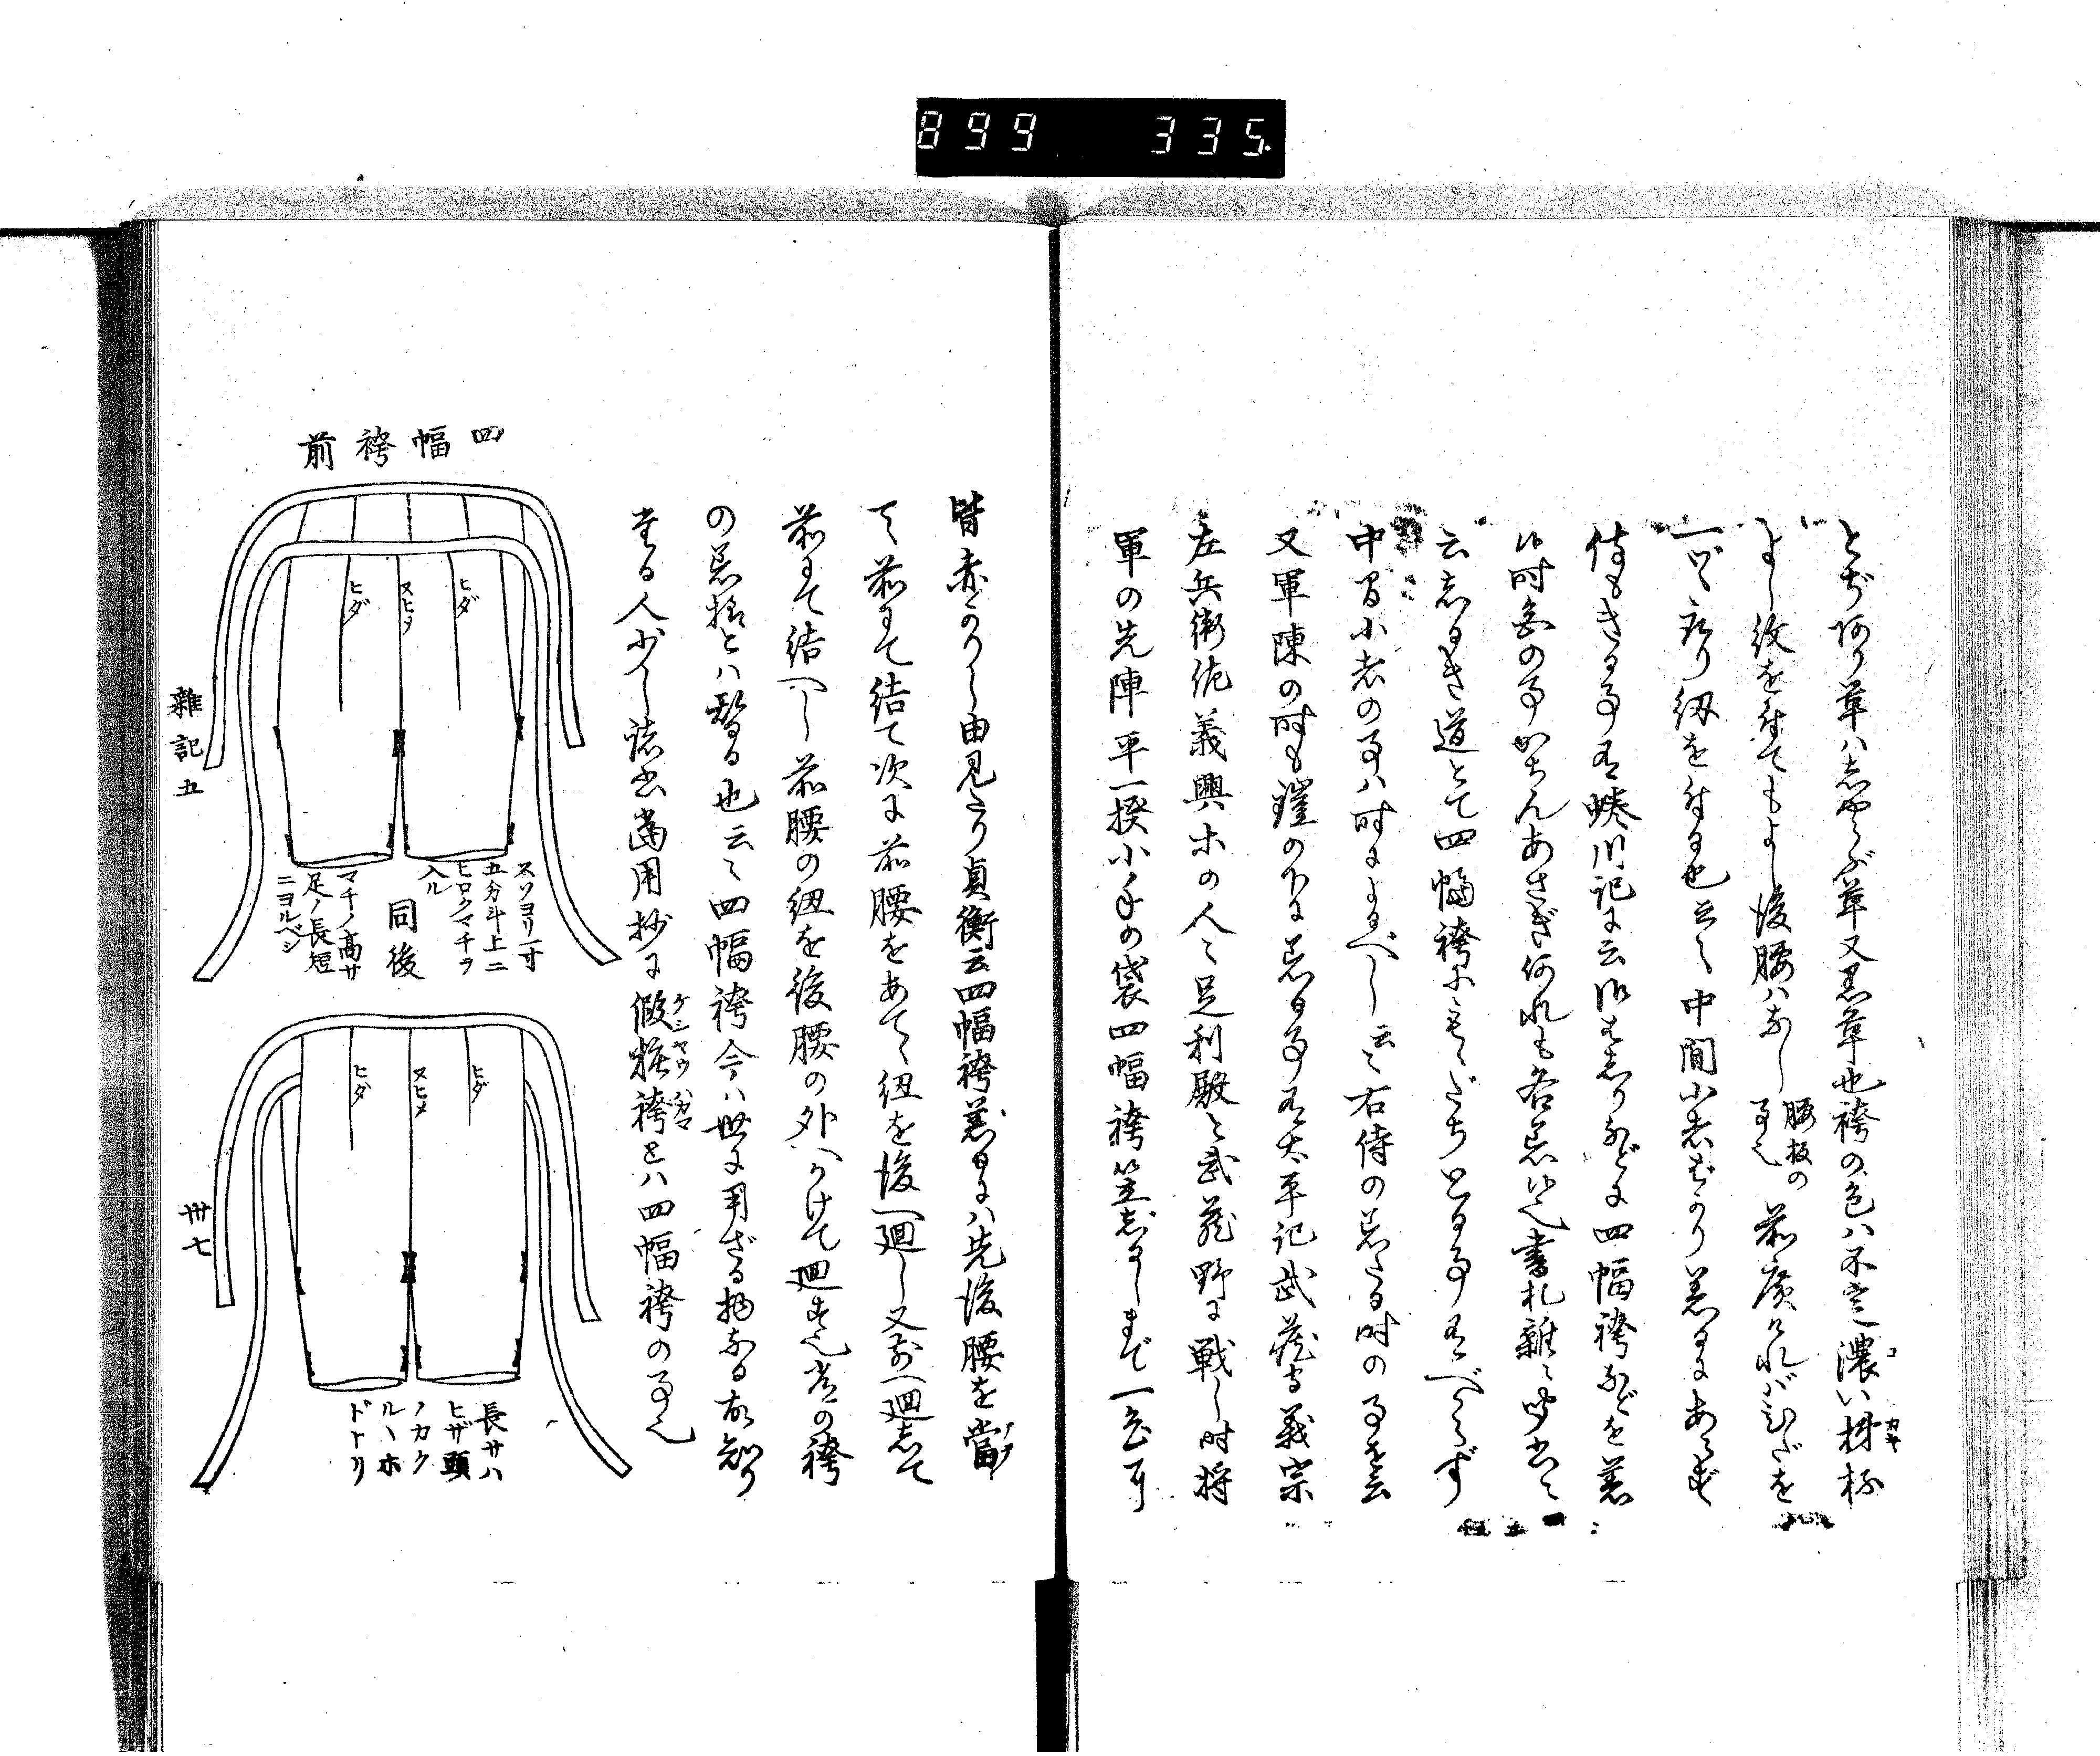 899 335
とぢ阿り革ハ志やうぶ革又黒革也袴の色ハ不定濃い柿
コ カキ
よし紋を付てもよし後腰ハなし
腰板の
事也
前広けれバひだを
一ツヽ取り紐を付る也云々中間小者ばかり着るにあらず
侍もきる事有蜷川記に云
四幅袴などを着
候時色の事かちんあさぎ何れも各着候也書札雑々聞書ニ
云志るき道とて四幅袴
中間小者の事ハ時によるべし云々右侍の着たる時の事を云
又軍陳の時も鎧の下に着る事有太平記武蔵守義宗
左兵衛佐義興ホの人々足利殿と武蔵野に戦し時将
軍の先陣平一揆小手の袋四幅袴笠志るしまで一色に
皆赤かりし由見たり貞衡云四幅袴着るにハ先後腰を當
アテ
て前にて結て次に前腰をあてヽ紐を後へ廻し又前へ廻して
前にて結へし前腰の紐を後腰の外へかけて廻す也常の袴
の着様とハ替る也云々四幅袴今ハ世に用ざる物なる故知り
たる人少し諸書當用抄に假粧袴とハ四幅袴の事也
ケシヤウ ハカマ
四幅袴前
ヒダ
ヌヒメ
ヒダ
スソヨリ一寸
五分斗上ニ
ヒロクマチヲ
入ル
マチノ高サ
足ノ長短
ニヨルベシ
同後
ヒダ
ヌヒメ
ヒダ
長サハ
ヒザ頭
ノカク
ルヽホ
ドナリ
雜記五
卅七